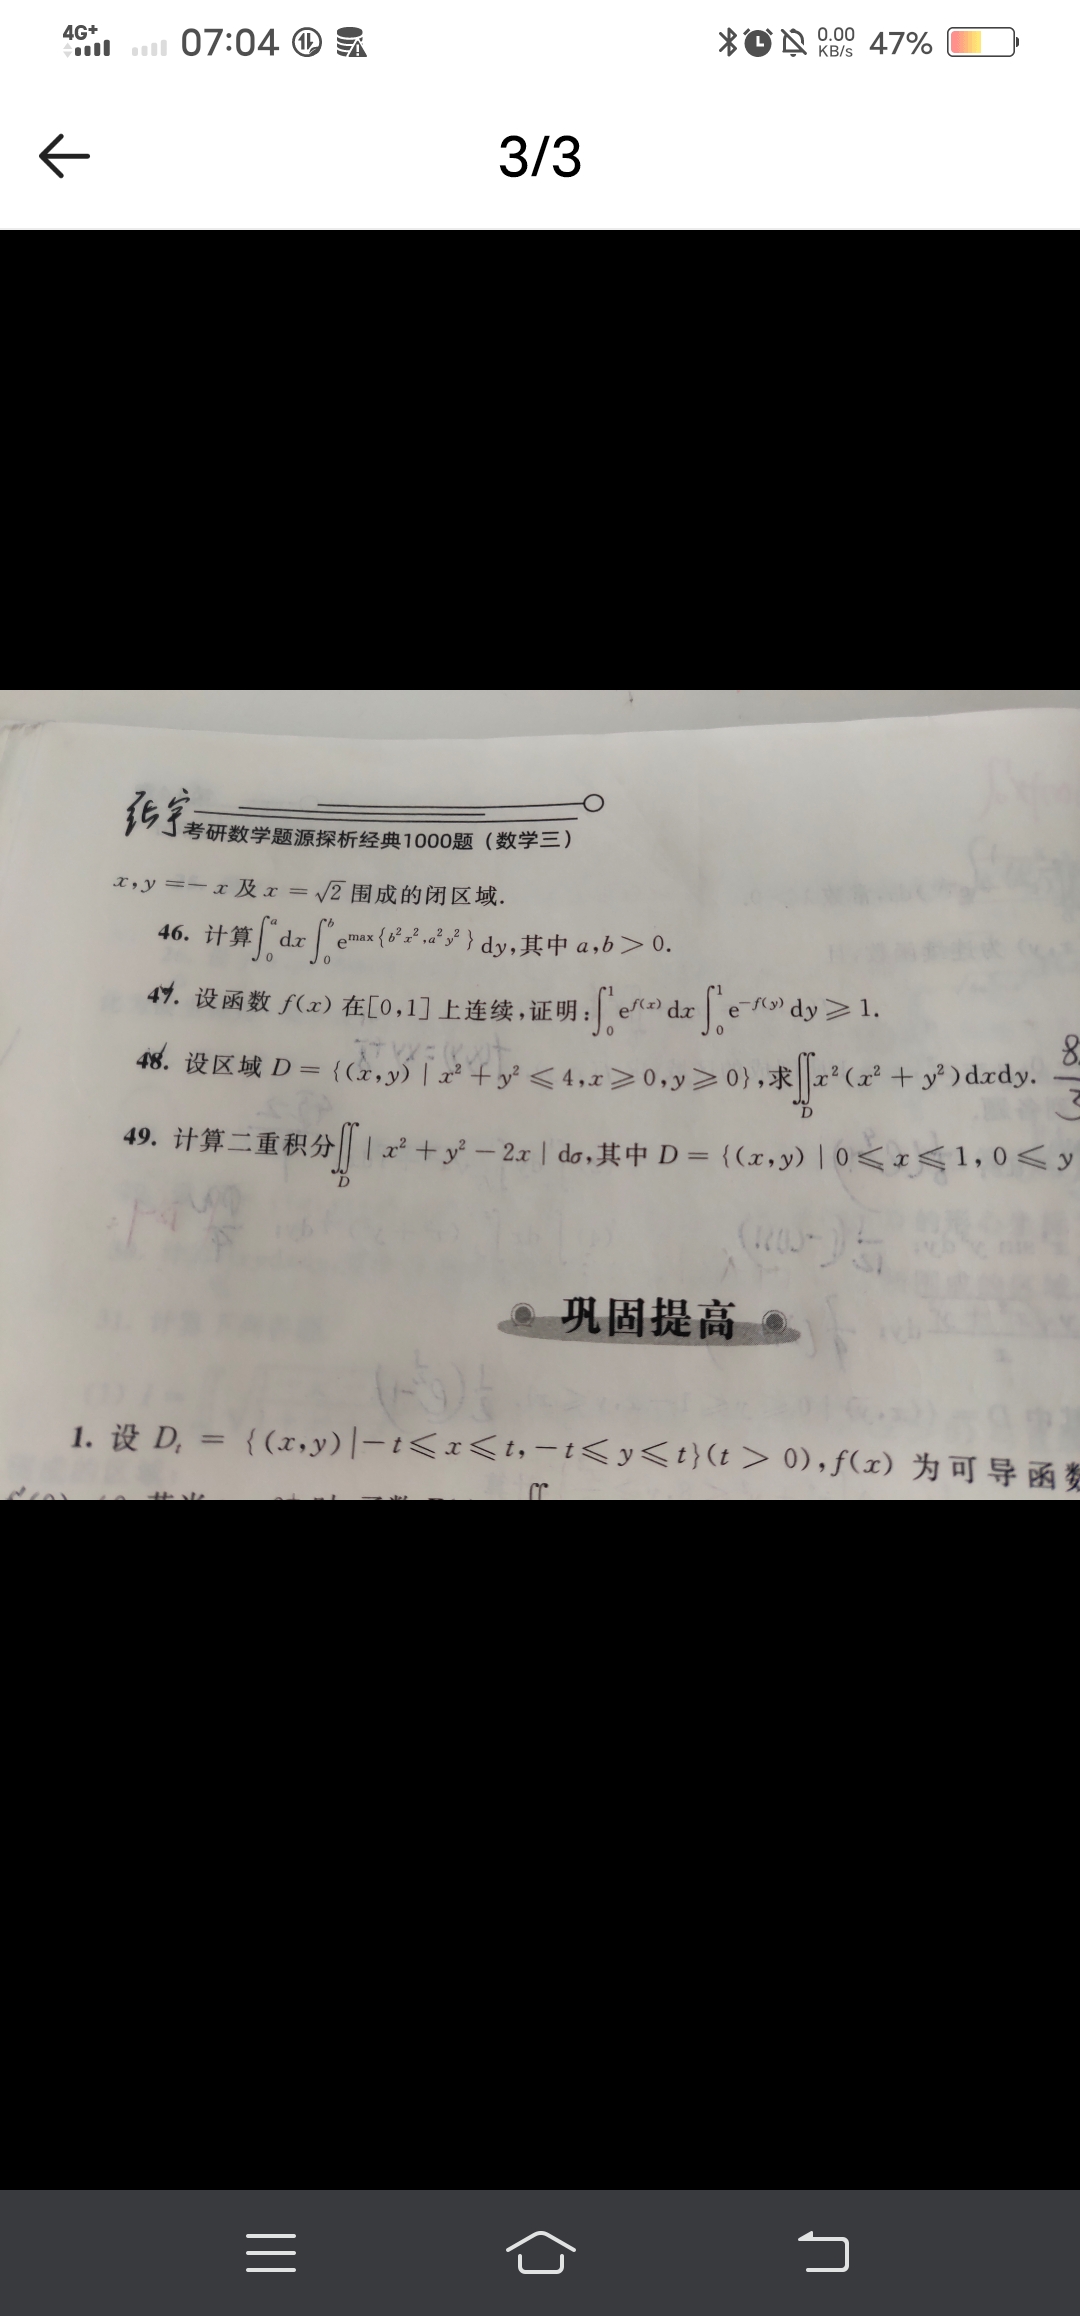 4G+ 07:04 0.00 KB/s 47%
3/3
张宇
考研数学题源探析经典1000题（数学三）
x,y=-x及x=√2围成的闭区域.
46. 计算∫₀ᵃdx∫₀ᵇe^{max{b²x²,a²y²}}dy,其中a,b>0.
47. 设函数f(x)在[0,1]上连续,证明:∫₀¹e^{f(x)}dx∫₀¹e^{-f(y)}dy⩾1.
48. 设区域D={(x,y)|x²+y²⩽4,x⩾0,y⩾0},求∬_D x²(x²+y²)dxdy.
49. 计算二重积分∬_D|x²+y²-2x|dσ,其中D={(x,y)|0⩽x⩽1,0⩽y
巩固提高
1. 设D_t={(x,y)|-t⩽x⩽t,-t⩽y⩽t}(t>0),f(x)为可导函数